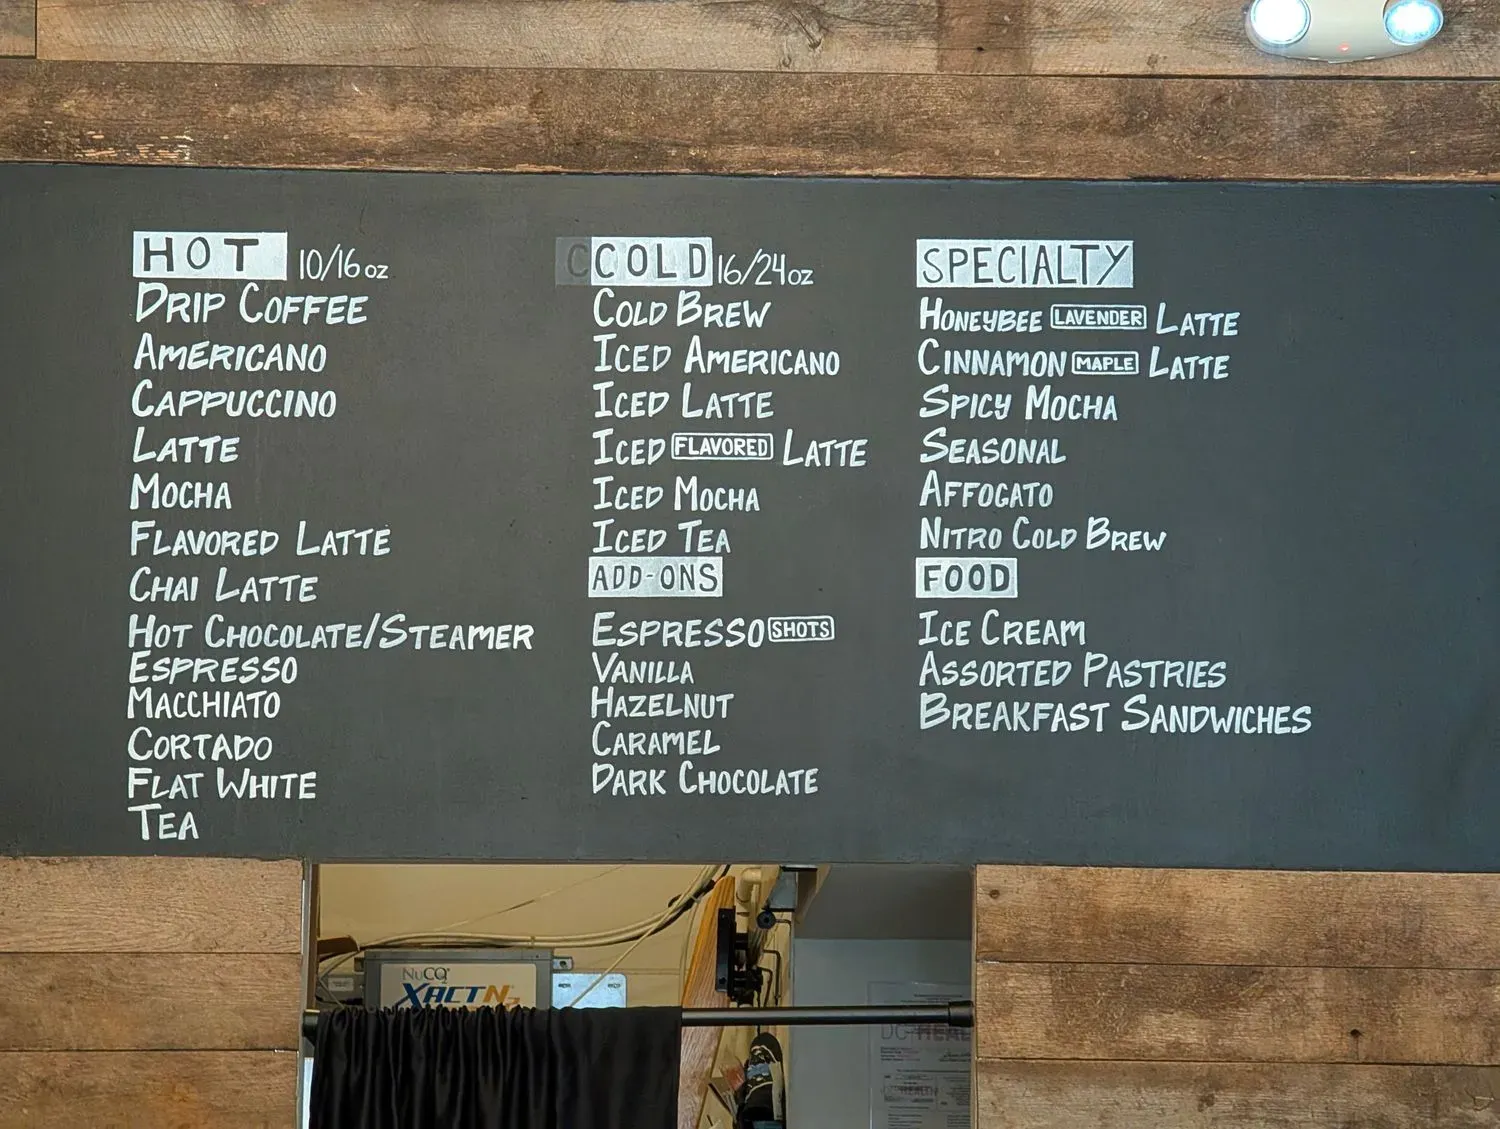 HOT 10/16 oz
DRIP COFFEE
AMERICANO
CAPPUCCINO
LATTE
MOCHA
FLAVORED LATTE
CHAI LATTE
HOT CHOCOLATE/STEAMER
ESPRESSO
MACCHIATO
CORTADO
FLAT WHITE
TEA
CCOLD 16/24 oz
COLD BREW
ICED AMERICANO
ICED LATTE
ICED FLAVORED LATTE
ICED MOCHA
ICED TEA
ADD-ONS
ESPRESSO SHOTS
VANILLA
HAZELNUT
CARAMEL
DARK CHOCOLATE
SPECIALTY
HONEYBEE LAVENDER LATTE
CINNAMON MAPLE LATTE
SPICY MOCHA
SEASONAL
AFFOGATO
NITRO COLD BREW
FOOD
ICE CREAM
ASSORTED PASTRIES
BREAKFAST SANDWICHES
NuCO2
XACTN2